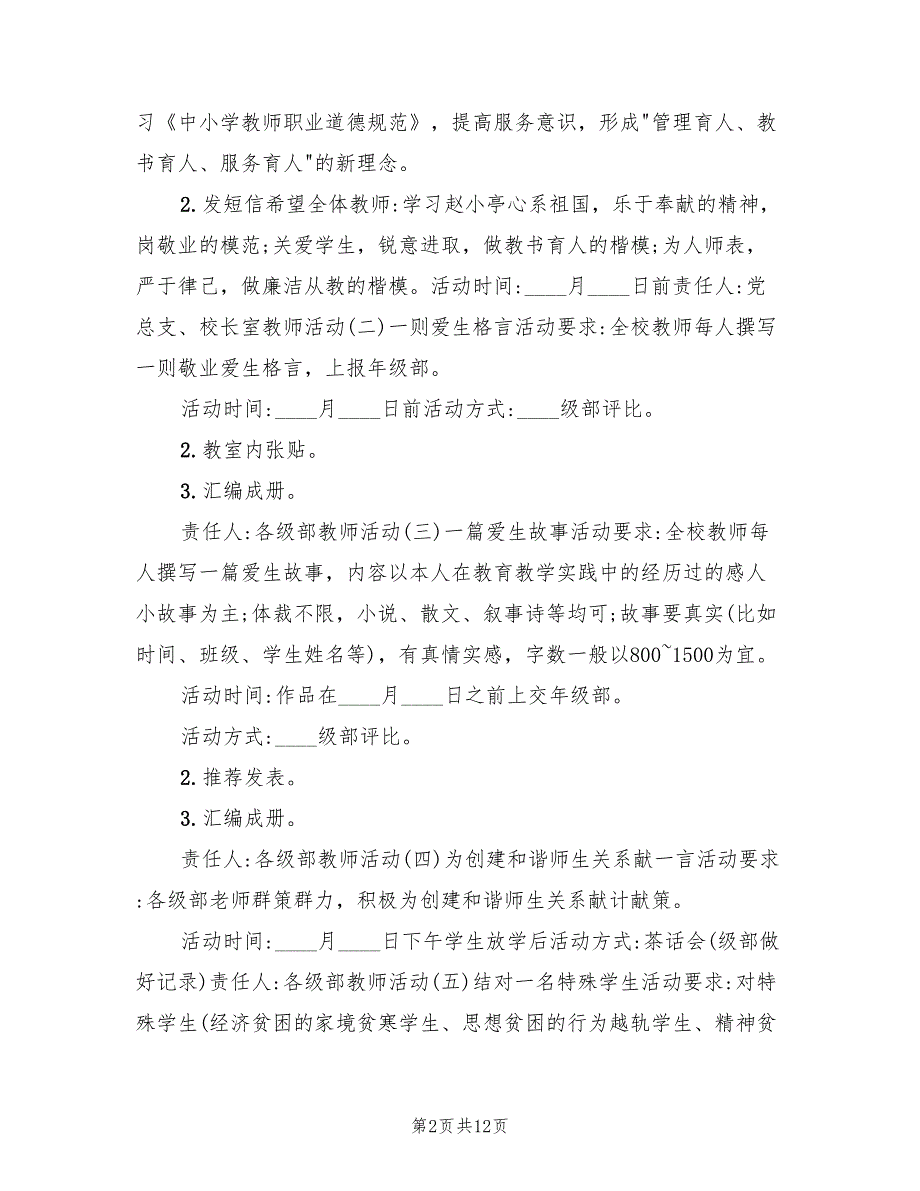 习《中小学教师职业道德规范》，提高服务意识，形成"管理育人、教
书育人、服务育人"的新理念。
2.发短信希望全体教师:学习赵小亭心系祖国，乐于奉献的精神，
岗敬业的模范;关爱学生，锐意进取，做教书育人的楷模;为人师表，
严于律己，做廉洁从教的楷模。活动时间:____月____日前责任人:党
总支、校长室教师活动(二)一则爱生格言活动要求:全校教师每人撰写
一则敬业爱生格言，上报年级部。
活动时间:____月____日前活动方式:____级部评比。
2.教室内张贴。
3.汇编成册。
责任人:各级部教师活动(三)一篇爱生故事活动要求:全校教师每
人撰写一篇爱生故事，内容以本人在教育教学实践中的经历过的感人
小故事为主;体裁不限，小说、散文、叙事诗等均可;故事要真实(比如
时间、班级、学生姓名等)，有真情实感，字数一般以800~1500为宜。
活动时间:作品在____月____日之前上交年级部。
活动方式:____级部评比。
2.推荐发表。
3.汇编成册。
责任人:各级部教师活动(四)为创建和谐师生关系献一言活动要求
:各级部老师群策群力，积极为创建和谐师生关系献计献策。
活动时间:____月____日下午学生放学后活动方式:茶话会(级部做
好记录)责任人:各级部教师活动(五)结对一名特殊学生活动要求:对特
殊学生(经济贫困的家境贫寒学生、思想贫困的行为越轨学生、精神贫
第2页共12页